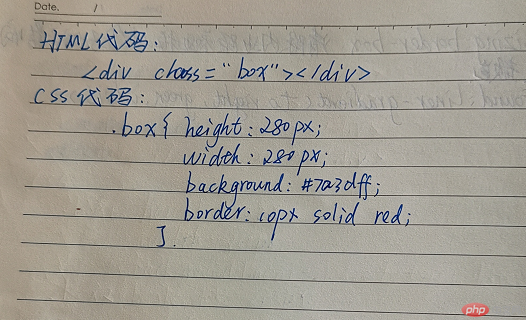 Date. /
HTML代码:
<div class="box"></div>
CSS代码:
.box{ height: 280px;
width: 280px;
background: #7a3dff;
border: 10px solid red;
}.
php